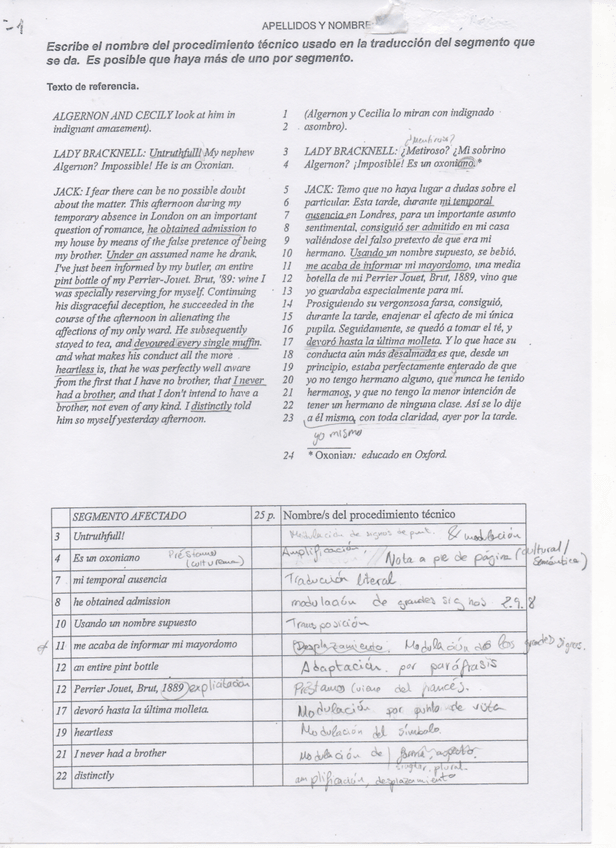 APELLIDOS Y NOMBRE
Escribe el nombre del procedimiento técnico usado en la traducción del segmento que
se da. Es posible que haya más de uno por segmento.
Texto de referencia.
ALGERNON AND CECILY look at him in
indignant amazement).
LADY BRACKNELL: Untruthful! My nephew
Algernon? Impossible! He is an Oxonian.
JACK: I fear there can be no possible doubt
about the matter. This afternoon during my
temporary absence in London on an important
question of romance, he obtained admission to
my house by means of the false pretence of being
my brother. Under an assumed name he drank,
I've just been informed by my butler, an entire
pint bottle of my Perrier-Jouet. Brut, '89: wine I
was specially reserving for myself. Continuing
his disgraceful deception, he succeeded in the
course of the afternoon in alienating the
affections of my only ward. He subsequently
stayed to tea, and devoured every single muffin.
and what makes his conduct all the more
heartless is, that he was perfectly well aware
from the first that I have no brother, that I never
had a brother, and that I don't intend to have a
brother, not even of any kind. I distinctly told
him so myself yesterday afternoon.
1 (Algernon y Cecilia lo miran con indignado
2 asombro).
¿Mentiroso?
3 LADY BRACKNELL: ¿Metiroso? ¿Mi sobrino
4 Algernon? ¡Imposible! Es un oxoniano.*
5 JACK: Temo que no haya lugar a dudas sobre el
6 particular. Esta tarde, durante mi temporal
7 ausencia en Londres, para un importante asunto
8 sentimental, consiguió ser admitido en mi casa
9 valiéndose del falso pretexto de que era mi
10 hermano. Usando un nombre supuesto, se bebió,
11 me acaba de informar mi mayordomo, una media
12 botella de mi Perrier Jouet, Brut, 1889, vino que
13 yo guardaba especialmente para mí.
14 Prosiguiendo su vergonzosa farsa, consiguió,
15 durante la tarde, enajenar el afecto de mi única
16 pupila. Seguidamente, se quedó a tomar el té, y
17 devoró hasta la última molleta. Y lo que hace su
18 conducta aún más desalmada es que, desde un
19 principio, estaba perfectamente enterado de que
20 yo no tengo hermano alguno, que nunca he tenido
21 hermanos, y que no tengo la menor intención de
22 tener un hermano de ninguna clase. Así se lo dije
23 a él mismo, con toda claridad, ayer por la tarde.
yo mismo
24 * Oxonian: educado en Oxford.
SEGMENTO AFECTADO 25 p. Nombre/s del procedimiento técnico
3 Untruthful! Modulación de signos de punt. & modulación
4 Es un oxoniano Préstamo (culturema) Amplificación, Nota a pie de página (cultural/ semántica)
7 mi temporal ausencia Traducción literal
8 he obtained admission modulación de grandes signos 2.9.8
10 Usando un nombre supuesto Transposición
11 me acaba de informar mi mayordomo Desplazamiento, Modulación de los grandes signos.
12 an entire pint bottle Adaptación por paráfrasis
12 Perrier Jouet, Brut, 1889 explicitación Préstamo (viene del francés).
17 devoró hasta la última molleta. Modulación por punto de vista
19 heartless Modulación del símbolo
21 I never had a brother Modulación de forma, aspecto singular, plural
22 distinctly amplificación, desplazamiento